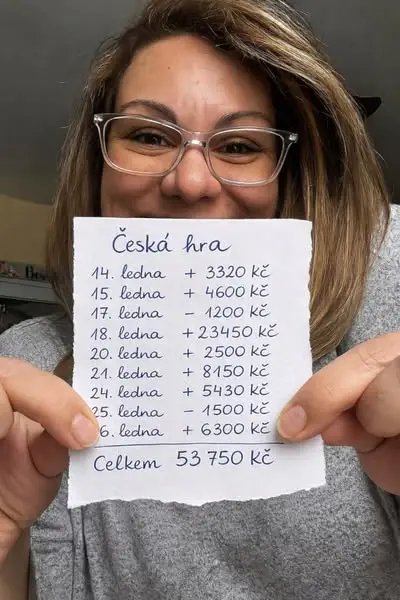 Česká hra
14. ledna + 3320 kč
15. ledna + 4600 kč
17. ledna - 1200 kč
18. ledna + 23450 kč
20. ledna + 2500 kč
21. ledna + 8150 kč
24. ledna + 5430 kč
25. ledna - 1500 kč
6. ledna + 6300 kč
Celkem 53 750 kč